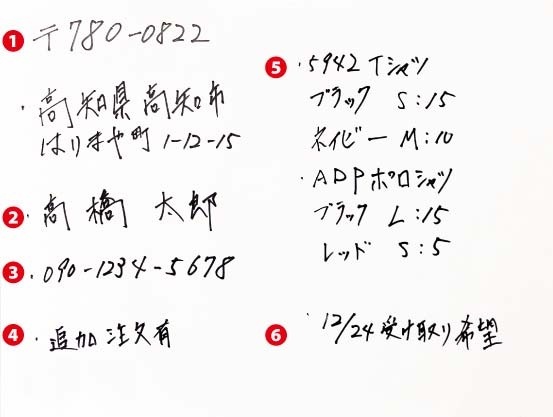 1 〒780-0822
・高知県高知市
はりまや町 1-12-15
2 ・高橋 太郎
3 ・090-1234-5678
4 ・追加注文有
5 ・5942 Tシャツ
ブラック S:15
ネイビー M:10
・ADPポロシャツ
ブラック L:15
レッド S:5
6 ・12/24 受け取り希望